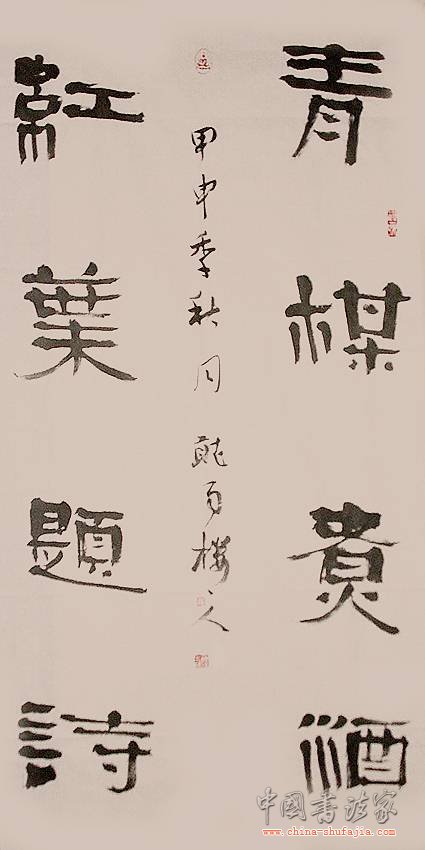 青楳煑酒
甲申季秋月 樓人
紅葉題詩
中國書法家
http://www.china-shufajia.com